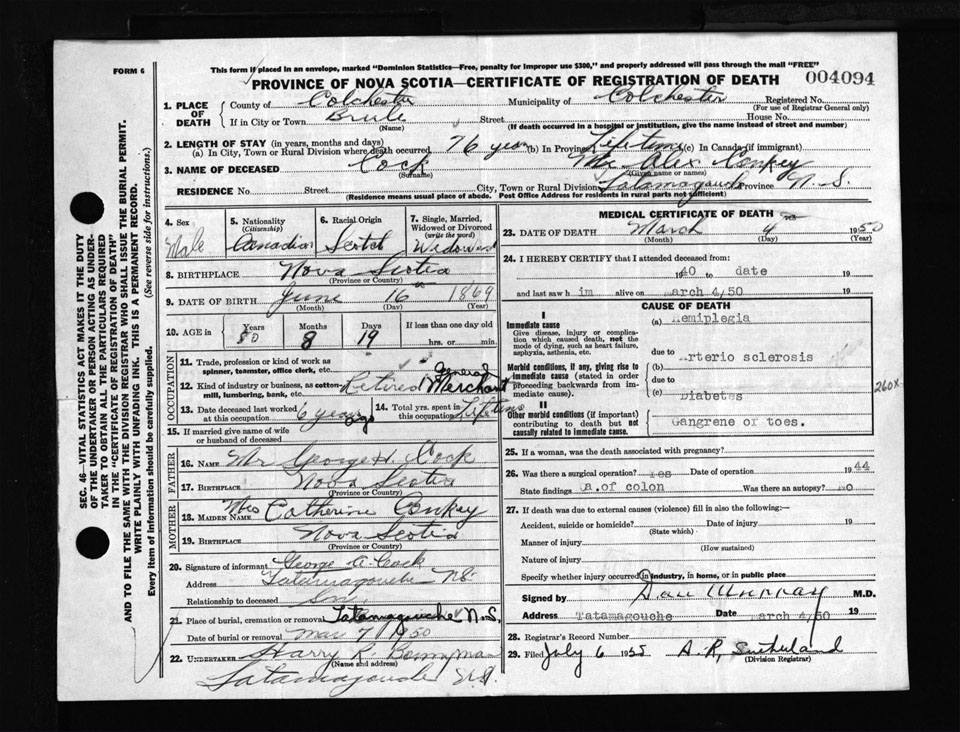 FORM 6
This form if placed in an envelope, marked "Dominion Statistics—Free, penalty for improper use $300," and properly addressed will pass through the mail "FREE"
PROVINCE OF NOVA SCOTIA—CERTIFICATE OF REGISTRATION OF DEATH
004094
1. PLACE OF DEATH
County of Colchester Municipality of Colchester Registered No.
(For use of Registrar General only)
If in City or Town Brule Street House No.
(Name) (If death occurred in a hospital or institution, give the name instead of street and number)
2. LENGTH OF STAY (in years, months and days)
(a) In City, Town or Rural Division where death occurred 76 years (b) In Province Lifetime (c) In Canada (if immigrant)
3. NAME OF DECEASED Cock Mr Alex Conkey
(Surname) (Given name or names)
RESIDENCE No. Street City, Town or Rural Division Tatamagouche Province N.S.
(Residence means usual place of abode. Post Office addresses for residents in rural parts not sufficient)
4. Sex
Male
5. Nationality
(Citizenship)
Canadian
6. Racial Origin
Scotch
7. Single, Married, Widowed or Divorced
(write the word)
Widowed
8. BIRTHPLACE Nova Scotia
(Province or Country)
9. DATE OF BIRTH June 16 1869
(Month) (Day) (Year)
10. AGE in
Years Months Days If less than one day old
80 8 19 hrs. or min.
OCCUPATION
11. Trade, profession or kind of work as spinner, teamster, office clerk, etc.
12. Kind of industry or business, as cotton-mill, lumbering, bank, etc. Retired General Merchant
13. Date deceased last worked at this occupation 6 years ago
14. Total yrs. spent in this occupation Lifetime
15. If married give name of wife or husband of deceased
FATHER
16. NAME Mr George H. Cock
17. BIRTHPLACE Nova Scotia
(Province or Country)
MOTHER
18. MAIDEN NAME Mrs Catherine Conkey
19. BIRTHPLACE Nova Scotia
(Province or Country)
20. Signature of informant George A. Cock
Address Tatamagouche N.S.
Relationship to deceased Son
21. Place of burial, cremation or removal Tatamagouche N.S.
Date of burial or removal Mar 7 1950
22. UNDERTAKER Harry R.
(Name and address)
Tatamagouche N.S.
MEDICAL CERTIFICATE OF DEATH
23. DATE OF DEATH March 4 1950
(Month) (Day) (Year)
24. I HEREBY CERTIFY that I attended deceased from
1940 to date 19
and last saw h im alive on march 4/50 19
CAUSE OF DEATH
I
Immediate cause
Give disease, injury or complication which caused death, not the mode of dying, such as heart failure, asphyxia, asthenia, etc.
(a) Hemiplegia
due to
Morbid conditions, if any, giving rise to immediate cause (stated in order proceeding backwards from immediate cause).
(b) Arterio sclerosis
due to
(c) Diabetes
260X
II
Other morbid conditions (if important) contributing to death but not causally related to immediate cause.
Gangrene of toes.
25. If a woman, was the death associated with pregnancy?
26. Was there a surgical operation? Yes Date of operation 1944
State findings Ca.of colon Was there an autopsy? No
27. If death was due to external causes (violence) fill in also the following:—
Accident, suicide or homicide? Date of injury 19
(State which)
Manner of injury
(How sustained)
Nature of injury
Specify whether injury occurred in industry, in home, or in public place
Signed by Dan Murray M.D.
Address Tatamagouche Date march 4/50 19
28. Registrar's Record Number
29. Filed July 6 1955 A. R. Sutherland
(Division Registrar)
SEC. 46—VITAL STATISTICS ACT MAKES IT THE DUTY
OF THE UNDERTAKER OR PERSON ACTING AS UNDER-
TAKER TO OBTAIN ALL THE PARTICULARS REQUIRED
IN THE "CERTIFICATE OF REGISTRATION OF DEATH"
AND TO FILE THE SAME WITH THE DIVISION REGISTRAR WHO SHALL ISSUE THE BURIAL PERMIT.
WRITE PLAINLY WITH UNFADING INK. THIS IS A PERMANENT RECORD.
Every item of Information should be carefully supplied. (See reverse side for instructions.)